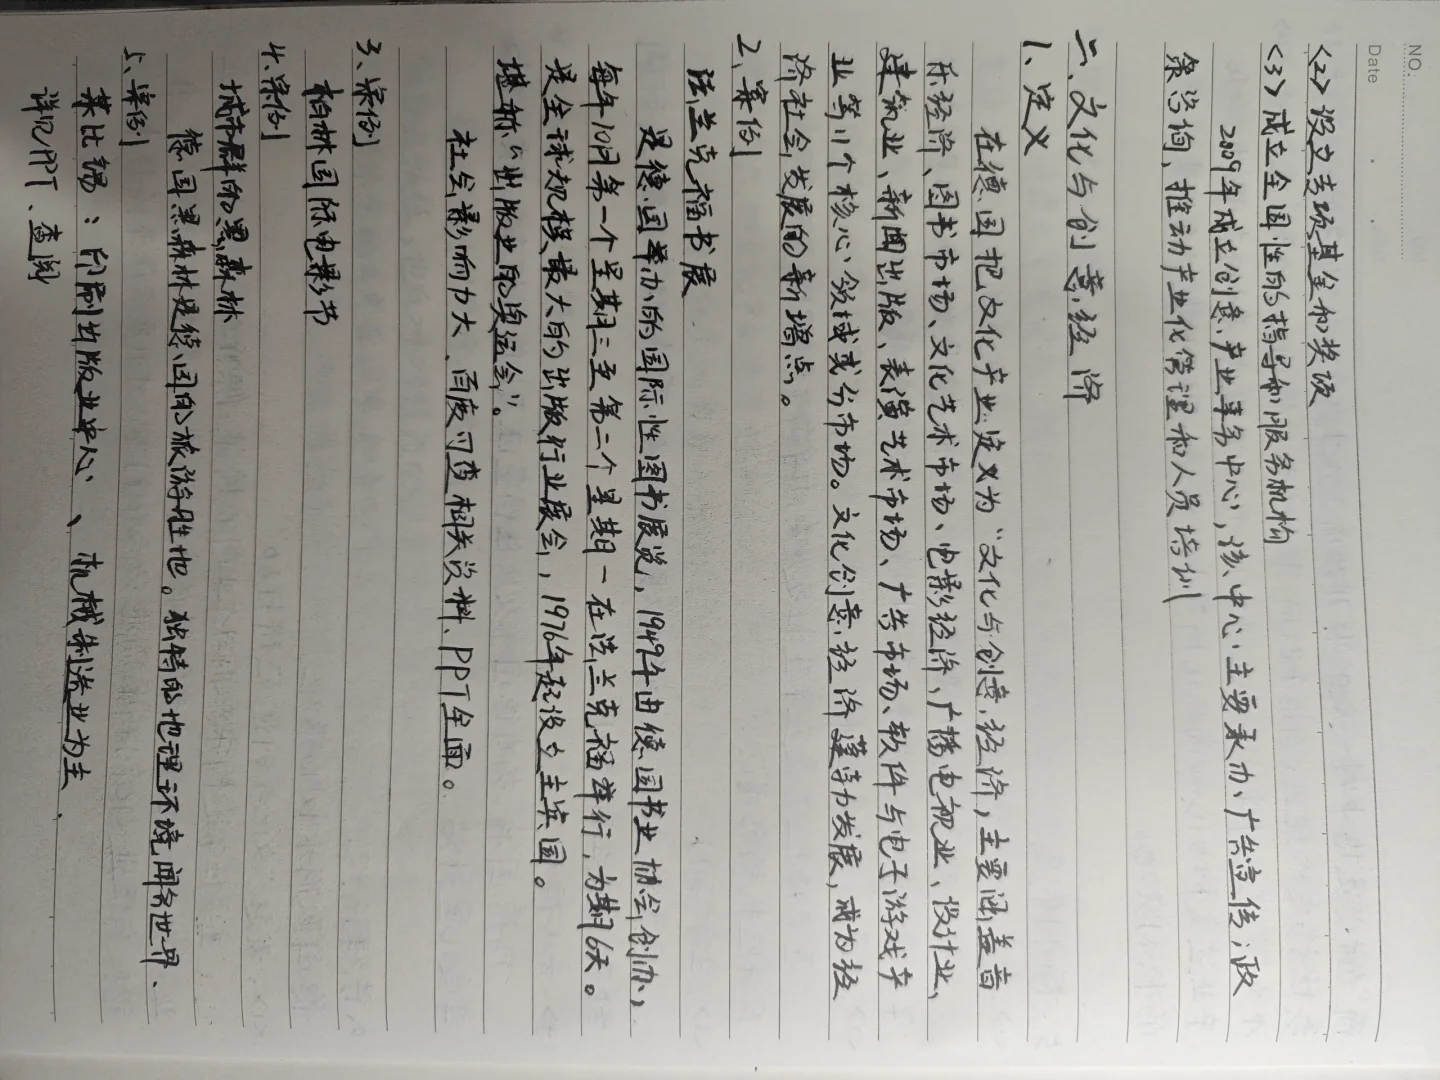 NO.
Date
<2> 设立专项基金和奖项
<3> 成立全国性的指导和服务机构
2009年成立创意产业事务中心，该中心主要承办、广告宣传、政
策咨询、推动产业化管理和人员培训
二、文化与创意经济
1、定义
在德国把文化产业定义为“文化与创意经济，主要涵盖音
乐经济、图书市场、文化艺术市场、电影经济，广播电视业、设计业、
建筑业、新闻出版、表演艺术市场、广告市场、软件与电子游戏产
业等11个核心领域或分市场。文化创意经济蓬勃发展，成为经
济社会发展的新增点。
2、案例
法兰克福书展
是德国举办的国际性图书展览，1949年由德国书业协会创办，
每年10月第一个星期三至第二个星期一在法兰克福举行，为期6天。
是全球规模最大的出版行业展会，1976年起设立主宾国。
堪称“出版业的奥运会”。
社会影响力大、百度可查相关资料、PPT全面。
3、案例
柏林国际电影节
4、案例
城市群的黑森林
德国黑森林是德国的旅游胜地。独特的地理环境闻名世界、
5、案例
莱比锡：印刷出版业中心、机械制造业为主
详见PPT、查阅